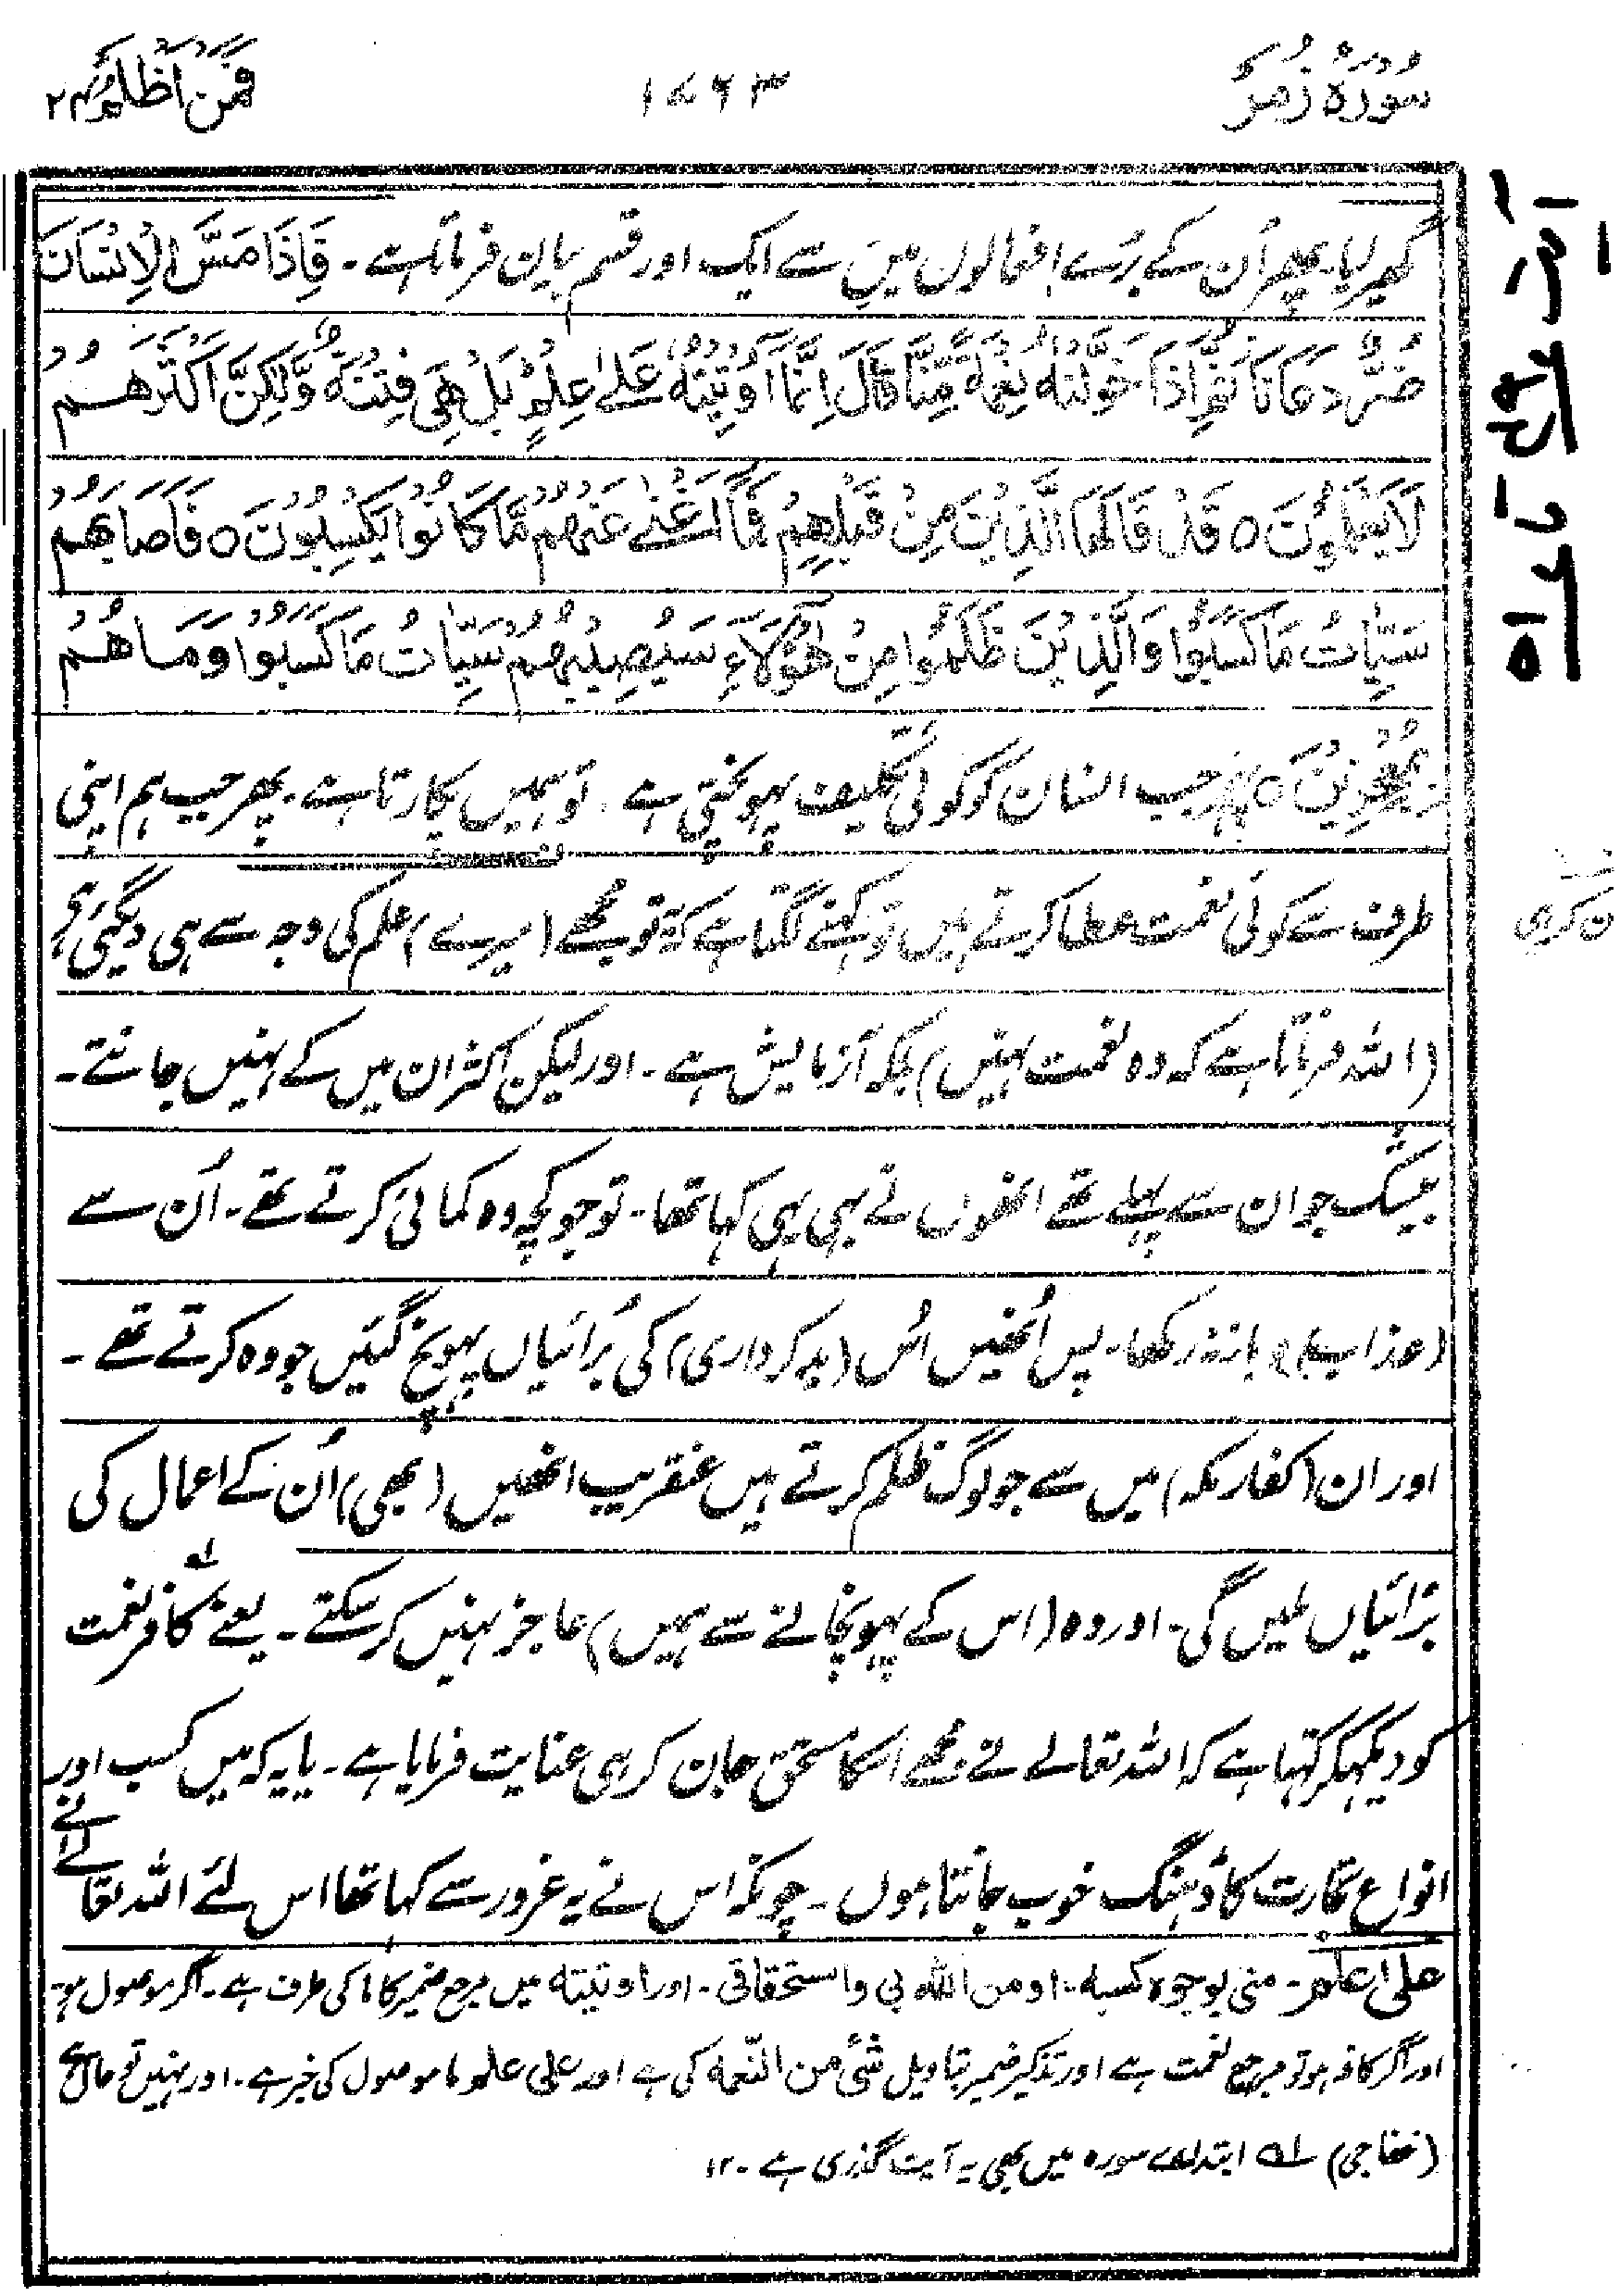 سُوْرَۃُ زُمَرْ
۱۷۶۳
فَمَنْ اَظْلَمُ ۲۴
گھیر لیا۔ پھر اُن کے بُرے افعالوں میں سے ایک اور قسم بیان فرماتا ہے۔ فَاِذَا مَسَّ الْاِنْسَانَ
ضُرٌّ دَعَانَا ثُمَّ اِذَا خَوَّلْنٰهُ نِعْمَةً مِّنَّا قَالَ اِنَّمَاۤ اُوْتِیْتُهٗ عَلٰى عِلْمٍ بَلْ هِیَ فِتْنَةٌ وَّلٰكِنَّ اَكْثَرَهُمْ
لَا یَعْلَمُوْنَ ۝ قَدْ قَالَهَا الَّذِیْنَ مِنْ قَبْلِهِمْ فَمَاۤ اَغْنٰى عَنْهُمْ مَّا كَانُوْا یَكْسِبُوْنَ ۝ فَاَصَابَهُمْ
سَیِّاٰتُ مَا كَسَبُوْا وَالَّذِیْنَ ظَلَمُوْا مِنْ هٰۤؤُلَآءِ سَیُصِیْبُهُمْ سَیِّاٰتُ مَا كَسَبُوْا وَمَا هُمْ
بِمُعْجِزِیْنَ ۝ پھر جب انسان کو کوئی تکلیف پہونچتی ہے۔ تو ہمیں پکارتا ہے۔ پھر جب ہم اپنی
طرف سے کوئی نعمت عطا کرتے ہیں تو کہنے لگتا ہے کہ یہ تو مجھے (میرے) علم کی وجہ سے ہی دیگئی ہے
(اللہ فرماتا ہے کہ وہ نعمت نہیں) بلکہ آزمایش ہے۔ اور لیکن اکثر ان میں کے نہیں جانتے۔
بیشک جو ان سے پہلے تھے انھوں نے بھی یہی کہا تھا۔ تو جو کچھ وہ کمائی کرتے تھے۔ اُن سے
(عذاب کو) باز نہ رکھا۔ پس اُنھیں اُس (بدکرداری) کی بُرائیاں پہونچ گئیں جو وہ کرتے تھے۔
اور ان (کفار مکہ) میں سے جو لوگ ظلم کرتے ہیں عنقریب انھیں (بھی) اُن کے اعمال کی
بُرائیاں ملیں گی۔ اور وہ (اس کے پہونچانے سے ہمیں) عاجز نہیں کر سکتے۔ یعنے کافر نعمت
کو دیکھکر کہتا ہے کہ اللہ تعالےٰ نے مجھے اسکا مستحق جان کر ہی عنایت فرمایا ہے۔ یا یہ کہ میں کسب اور
انواع تجارت کا ڈہنگ خوب جانتا ہوں۔ چونکہ اس نے یہ غرور سے کہا تھا اس لئے اللہ تعالےٰ نے
علی علم۔ منی بوجوہ کسبہ۔ او من اللہ بی واستحقاقی۔ اور اوتیتہ میں مرجع ضمیر کا ما کی طرف ہے۔ اگر موصول ہو۔
اور اگر کافہ ہو تو مرجع نعمت ہے اور تذکیر ضمیر بتاویل شئ من النعمۃ کی ہے اور علی علم ما موصول کی خبر ہے۔ اور نہیں تو حال ہے
(خفاجی) لہ ابتدائے سورہ میں بھی یہ آیت گذری ہے۔ ۱۲